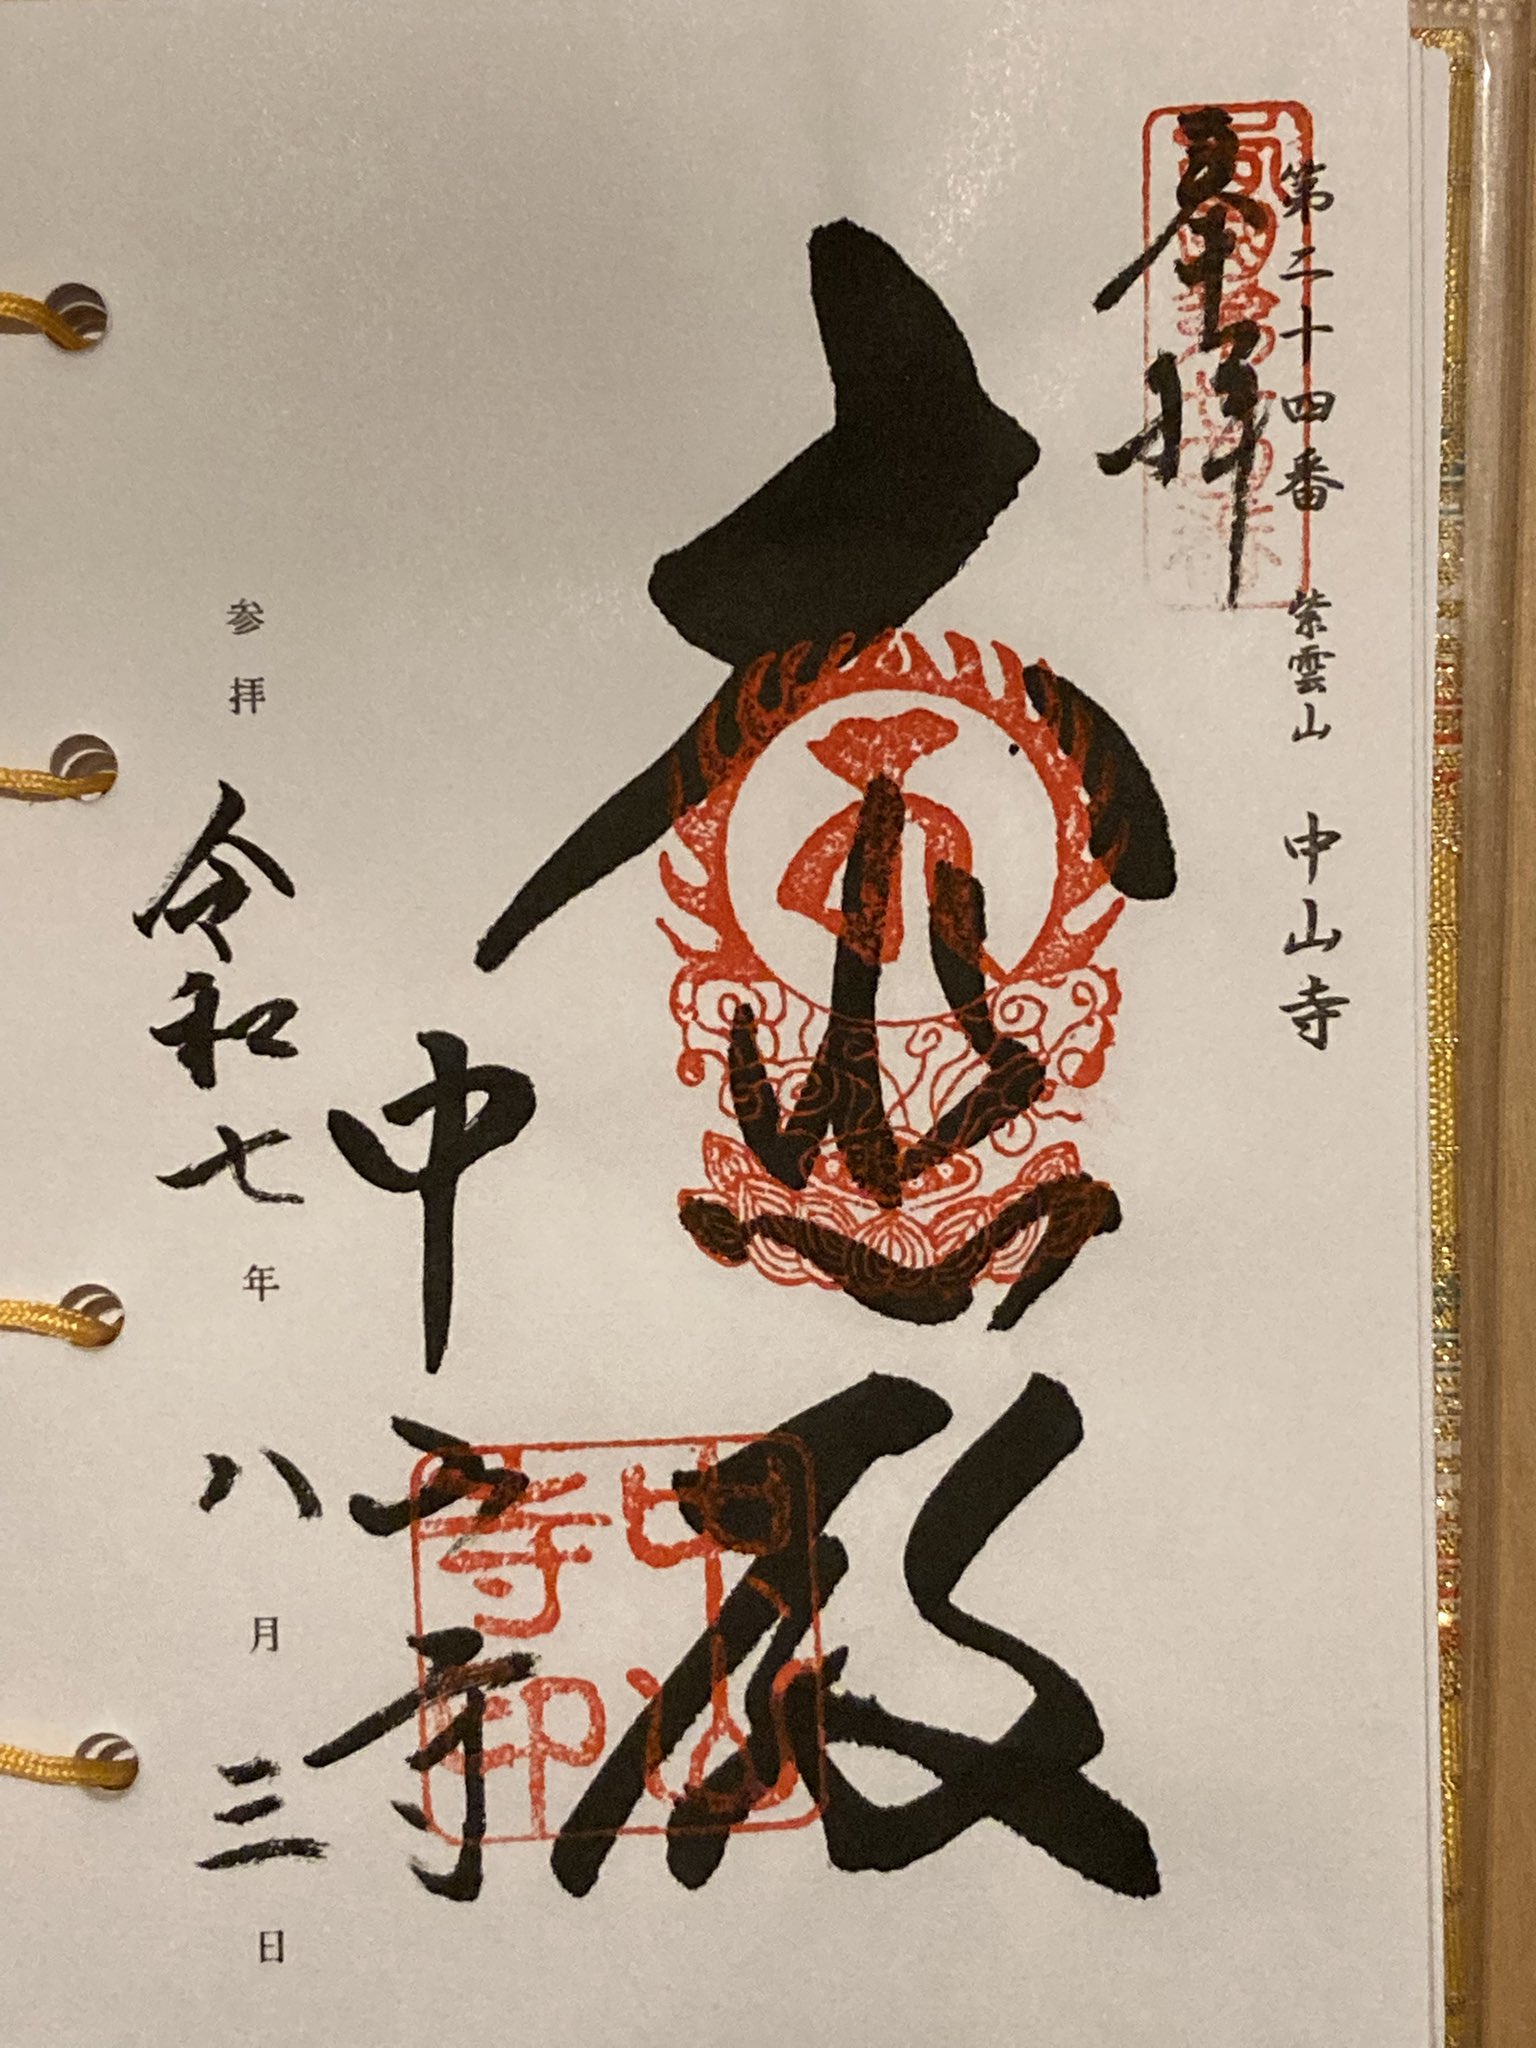 第二十四番 紫雲山 中山寺
奉拝
大悲殿
中山寺
中山寺印
参拝 令和七年八月三日